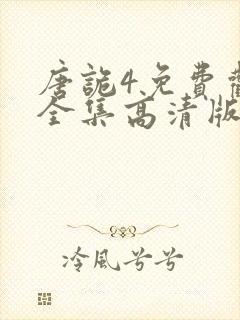 唐詭4免費
全集高清版
冷風兮兮